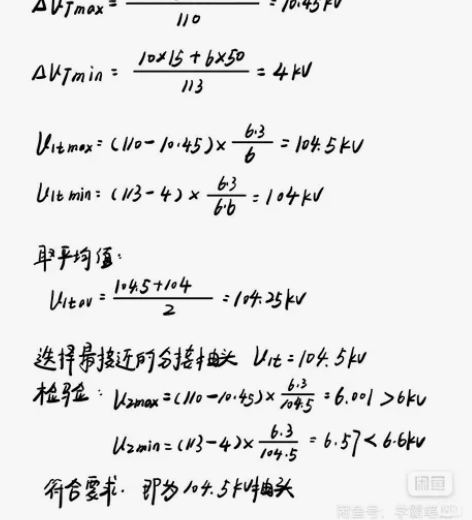 ΔU_Tmax = ——— = 10.45 kV
110
ΔU_Tmin = (10×15 + 6×50)/113 = 4 kV
U_1tmax = (110 - 10.45) × 6.3/6 = 104.5 kV
U_1tmin = (113 - 4) × 6.3/6.6 = 104 kV
取平均值:
U_1tav = (104.5 + 104)/2 = 104.25 kV
选择最接近的分接抽头 U_1t = 104.5 kV
检验: U_2max = (110 - 10.45) × 6.3/104.5 = 6.001 > 6 kV
U_2min = (113 - 4) × 6.3/104.5 = 6.57 < 6.6 kV
符合要求. 即为 104.5 kV 抽头
闲鱼